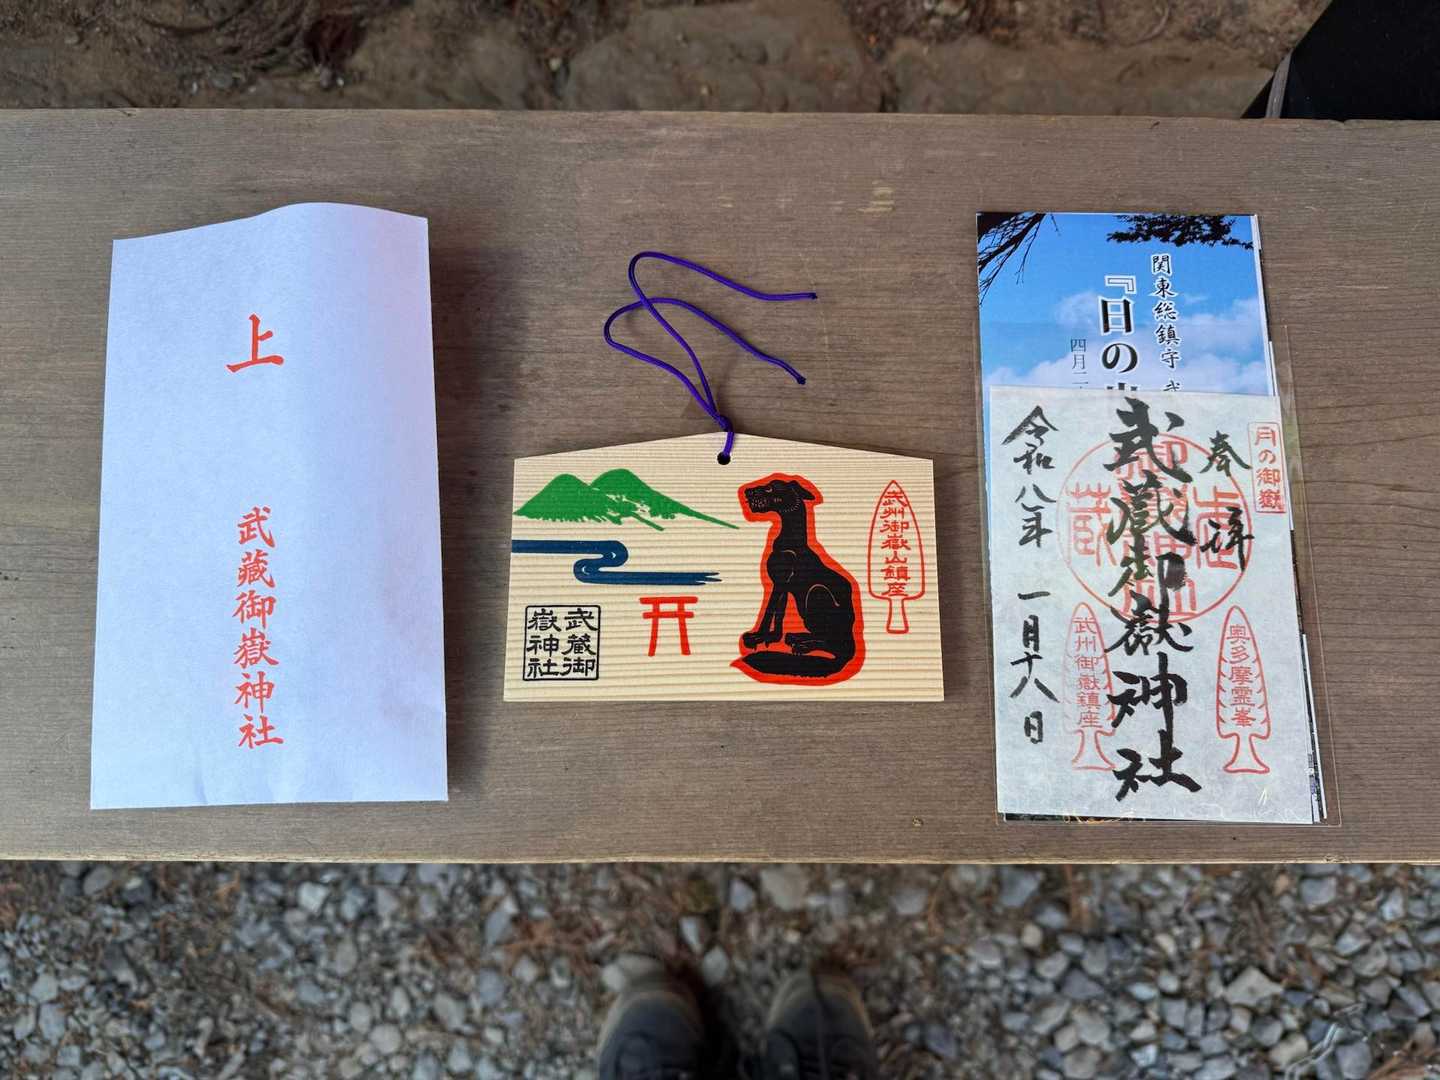 上
武蔵御嶽神社
武蔵御
嶽神社
武州御嶽山鎮座
関東総鎮守
『日の
四月二
月の御嶽
奉拝
武蔵御嶽神社
令和八年 一月十八日
武州御嶽鎮座
奥多摩霊峯